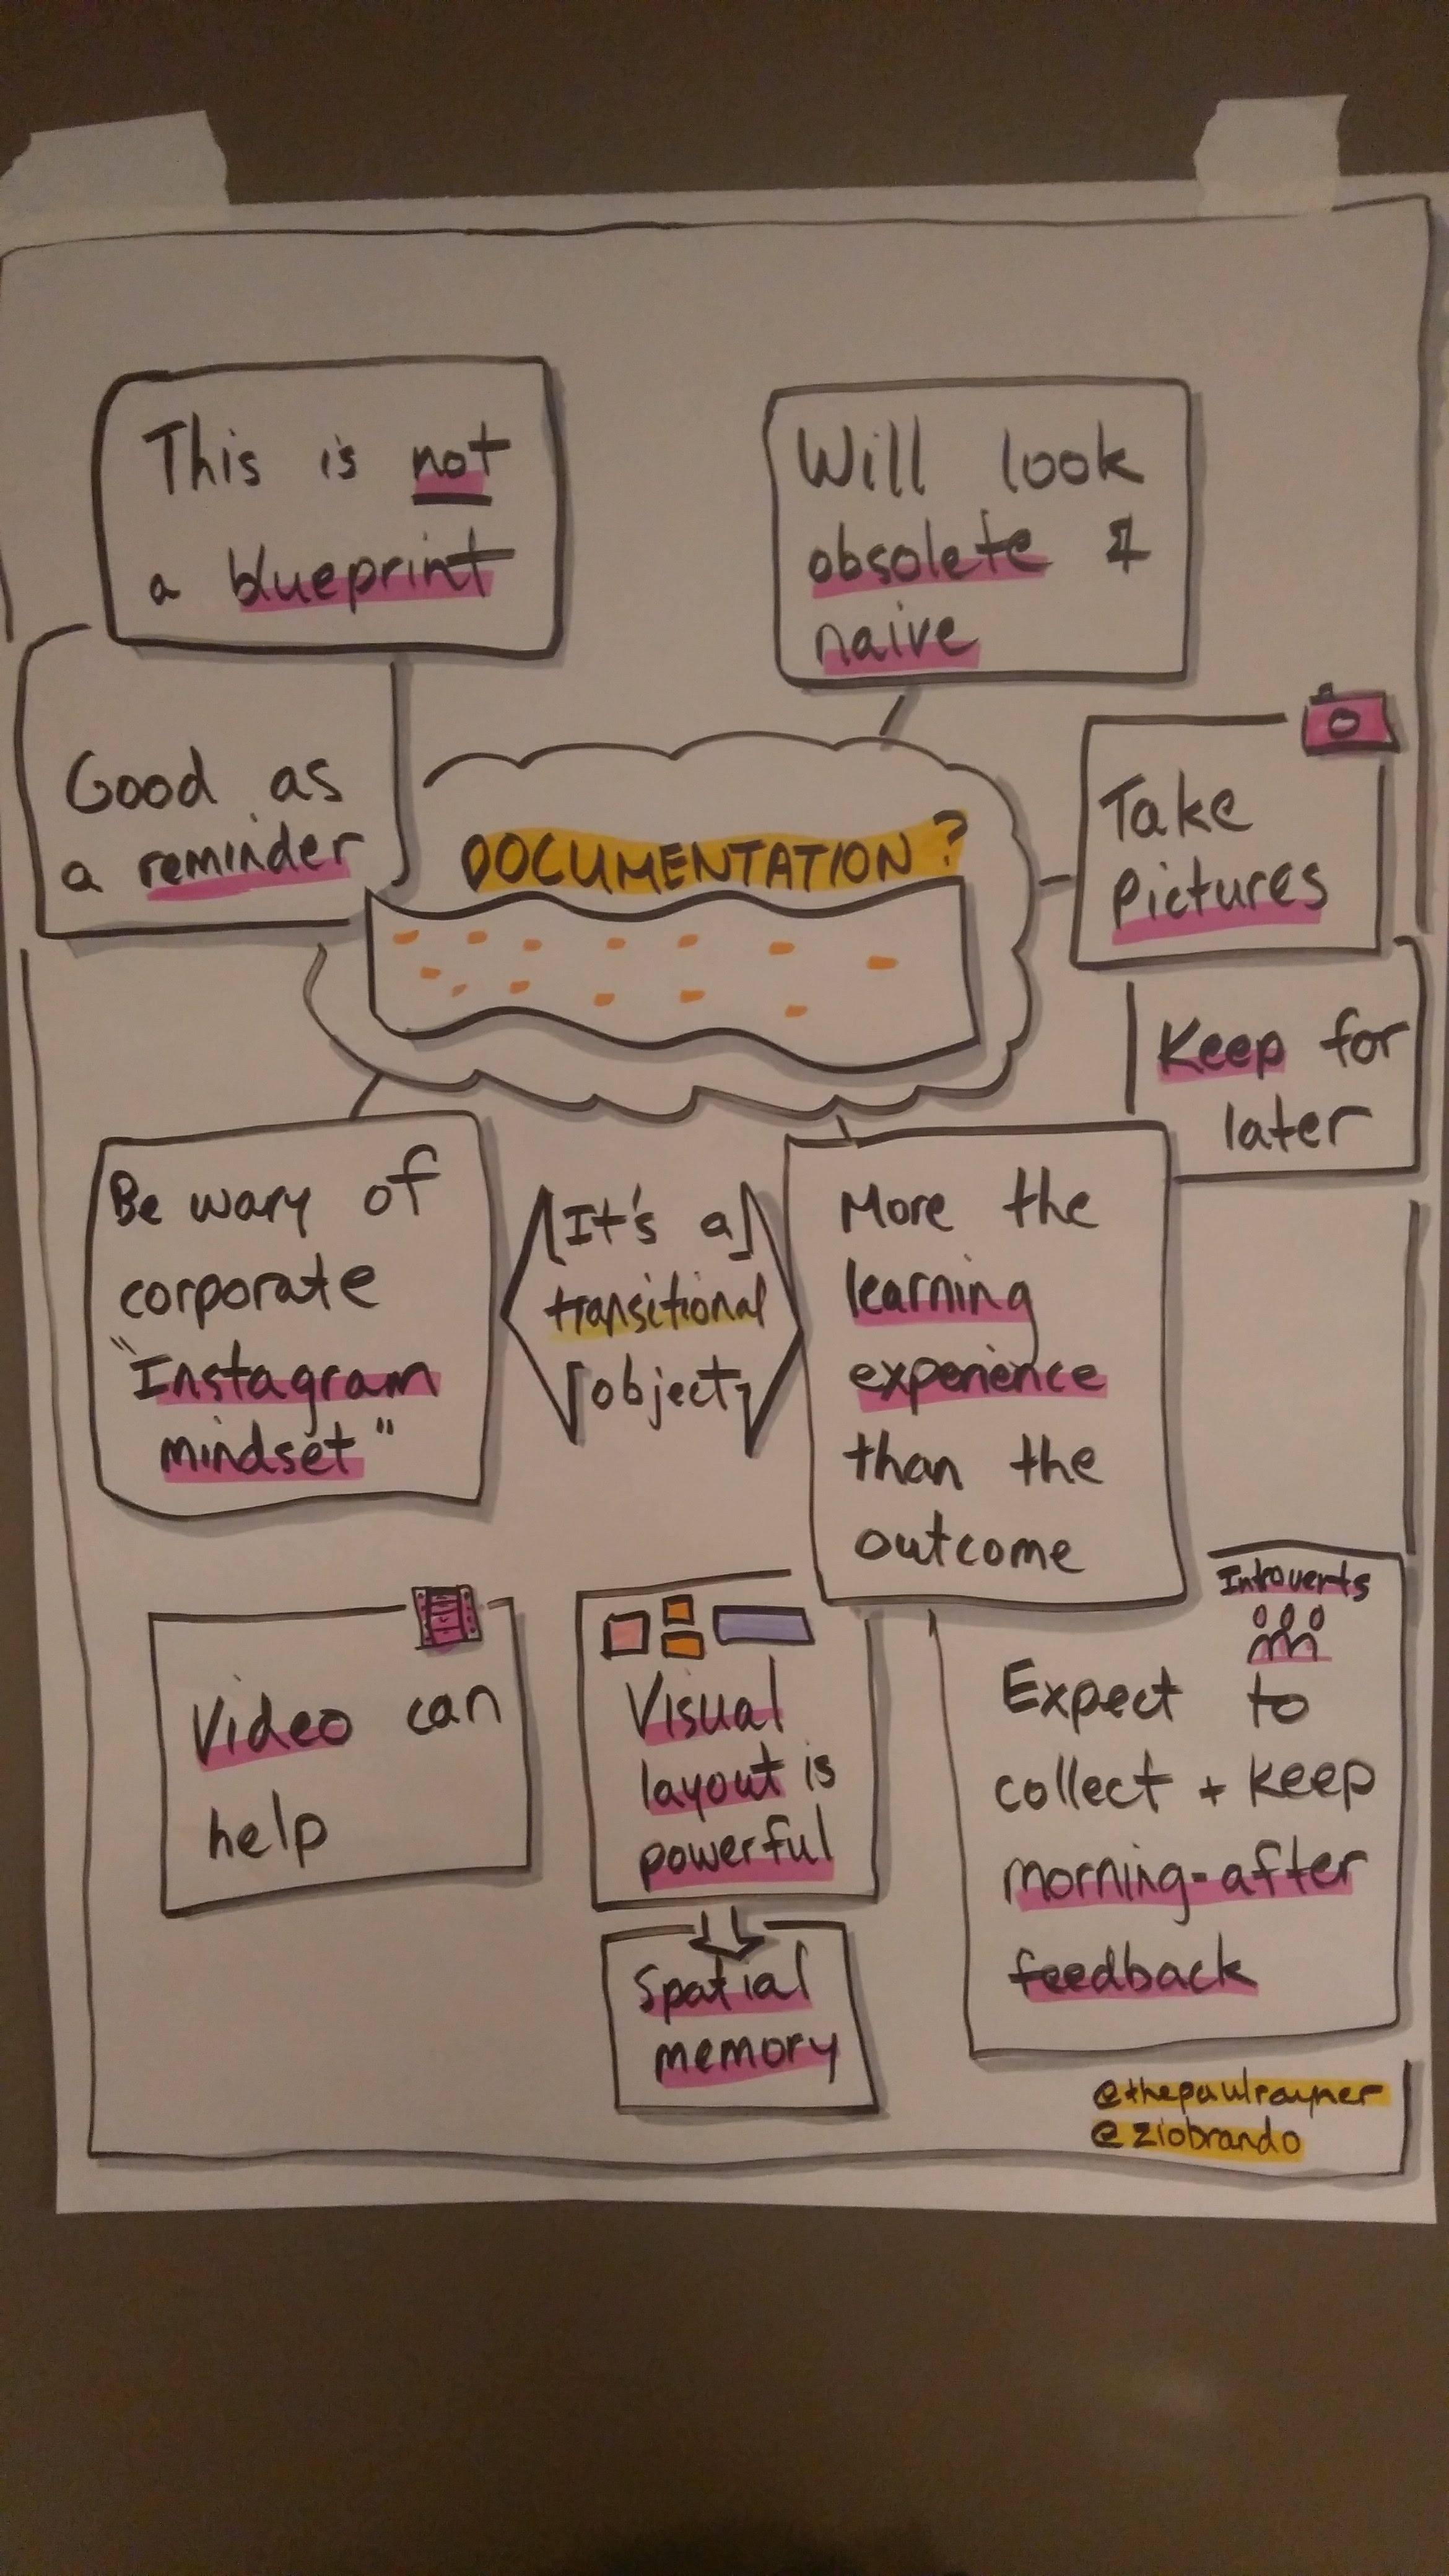 This is not
a blueprint
Will look
obsolete &
naive
Good as
a reminder
DOCUMENTATION?
Take
pictures
Keep for
later
Be wary of
corporate
"Instagram
mindset"
It's a
transitional
object
More the
learning
experience
than the
outcome
Video can
help
Visual
layout is
powerful
Spatial
memory
Introverts
Expect to
collect + keep
morning-after
feedback
@thepaulrayner
@ziobrando